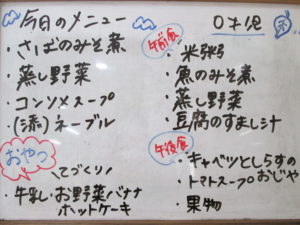 今日のメニュー
・さばのみそ煮
・蒸し野菜
・コンソメスープ
・(添)ネーブル
おやつ
てづくり!
・牛乳・お野菜バナナ
ホットケーキ
0才児
午前食
・米粥
・魚のみそ煮
・蒸し野菜
・豆腐のすまし汁
午後食
・キャベツとしらすの
トマトスープおじや
・果物